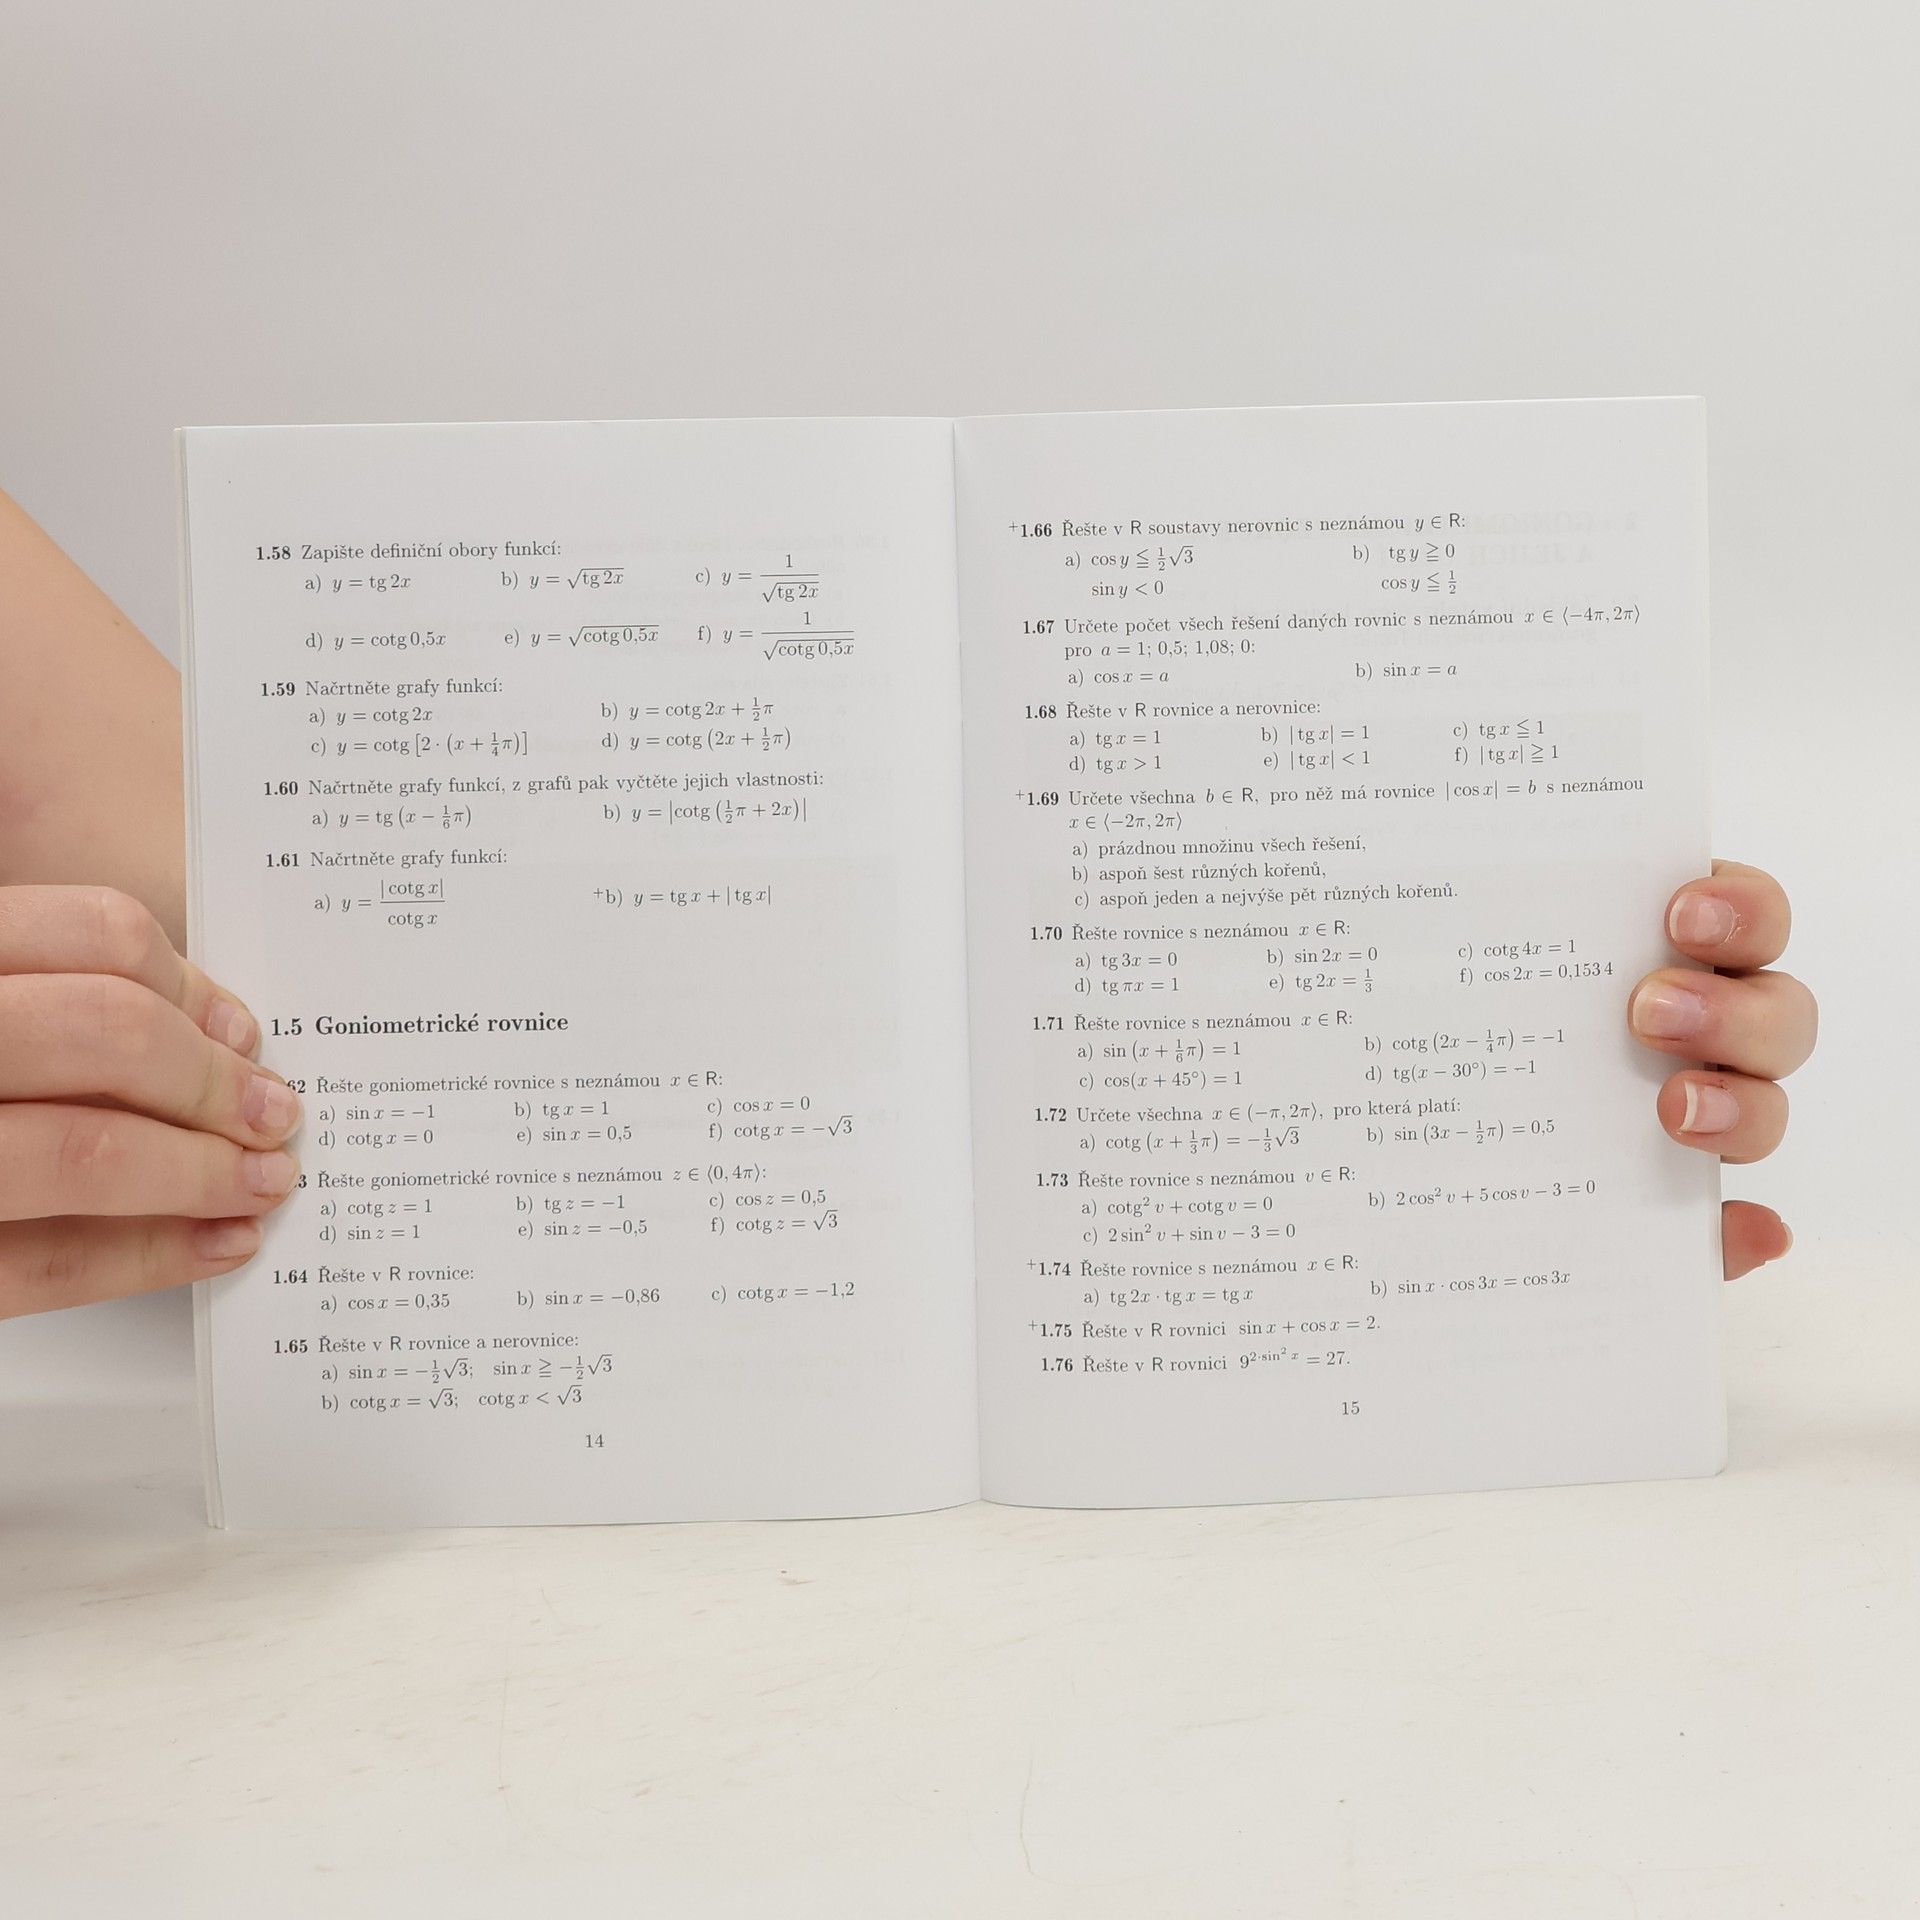 1.58 Zapište definiční obory funkcí:
a) y = tg 2x b) y = √(tg 2x) c) y = 1/√(tg 2x)
d) y = cotg 0,5x e) y = √(cotg 0,5x) f) y = 1/√(cotg 0,5x)
1.59 Načrtněte grafy funkcí:
a) y = cotg 2x b) y = cotg 2x + ½π
c) y = cotg [2 · (x + ¼π)] d) y = cotg (2x + ½π)
1.60 Načrtněte grafy funkcí, z grafů pak vyčtěte jejich vlastnosti:
a) y = tg (x − ⅙π) b) y = |cotg (½π + 2x)|
1.61 Načrtněte grafy funkcí:
a) y = |cotg x|/cotg x +b) y = tg x + |tg x|
1.5 Goniometrické rovnice
62 Řešte goniometrické rovnice s neznámou x ∈ R:
a) sin x = −1 b) tg x = 1 c) cos x = 0
d) cotg x = 0 e) sin x = 0,5 f) cotg x = −√3
3 Řešte goniometrické rovnice s neznámou z ∈ ⟨0, 4π⟩:
a) cotg z = 1 b) tg z = −1 c) cos z = 0,5
d) sin z = 1 e) sin z = −0,5 f) cotg z = √3
1.64 Řešte v R rovnice:
a) cos x = 0,35 b) sin x = −0,86 c) cotg x = −1,2
1.65 Řešte v R rovnice a nerovnice:
a) sin x = −½√3; sin x ≧ −½√3
b) cotg x = √3; cotg x < √3
14
+1.66 Řešte v R soustavy nerovnic s neznámou y ∈ R:
a) cos y ≦ ½√3 b) tg y ≧ 0
sin y < 0 cos y ≦ ½
1.67 Určete počet všech řešení daných rovnic s neznámou x ∈ ⟨−4π, 2π⟩
pro a = 1; 0,5; 1,08; 0:
a) cos x = a b) sin x = a
1.68 Řešte v R rovnice a nerovnice:
a) tg x = 1 b) |tg x| = 1 c) tg x ≦ 1
d) tg x > 1 e) |tg x| < 1 f) |tg x| ≧ 1
+1.69 Určete všechna b ∈ R, pro něž má rovnice |cos x| = b s neznámou
x ∈ ⟨−2π, 2π⟩
a) prázdnou množinu všech řešení,
b) aspoň šest různých kořenů,
c) aspoň jeden a nejvýše pět různých kořenů.
1.70 Řešte rovnice s neznámou x ∈ R:
a) tg 3x = 0 b) sin 2x = 0 c) cotg 4x = 1
d) tg πx = 1 e) tg 2x = ⅓ f) cos 2x = 0,153 4
1.71 Řešte rovnice s neznámou x ∈ R:
a) sin (x + ⅙π) = 1 b) cotg (2x − ¼π) = −1
c) cos(x + 45°) = 1 d) tg(x − 30°) = −1
1.72 Určete všechna x ∈ (−π, 2π⟩, pro která platí:
a) cotg (x + ⅓π) = −⅓√3 b) sin (3x − ½π) = 0,5
1.73 Řešte rovnice s neznámou v ∈ R:
a) cotg² v + cotg v = 0 b) 2 cos² v + 5 cos v − 3 = 0
c) 2 sin² v + sin v − 3 = 0
+1.74 Řešte rovnice s neznámou x ∈ R:
a) tg 2x · tg x = tg x b) sin x · cos 3x = cos 3x
+1.75 Řešte v R rovnici sin x + cos x = 2.
1.76 Řešte v R rovnici 9^(2·sin² x) = 27.
15